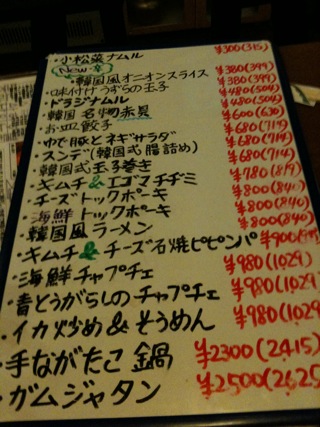 ・小松菜ナムル ¥300(315)
New
・韓国風オニオンスライス ¥380(399)
¥380(399)
・味付けうずらの玉子 ¥480(504)
・ドラジナムル ¥480(504)
・韓国名物赤貝 ¥600(630)
・お皿餃子 ¥680(714)
・ゆで豚とネギサラダ ¥680(714)
・スンデ(韓国式腸詰め) ¥680(714)
・韓国式玉子巻き ¥780(819)
・キムチ&エゴマチヂミ ¥800(840)
・チーズトックポーキ ¥800(840)
・海鮮トックポーキ ¥800(840)
・韓国風ラーメン
・キムチ&チーズ石焼ビビンバ ¥900
・海鮮チャプチェ ¥980(1029)
・青とうがらしのチャプチェ ¥980(1029)
・イカ炒め&そうめん ¥980(1029)
・手ながたこ鍋 ¥2300(2415)
・ガムジャタン ¥2500(2625